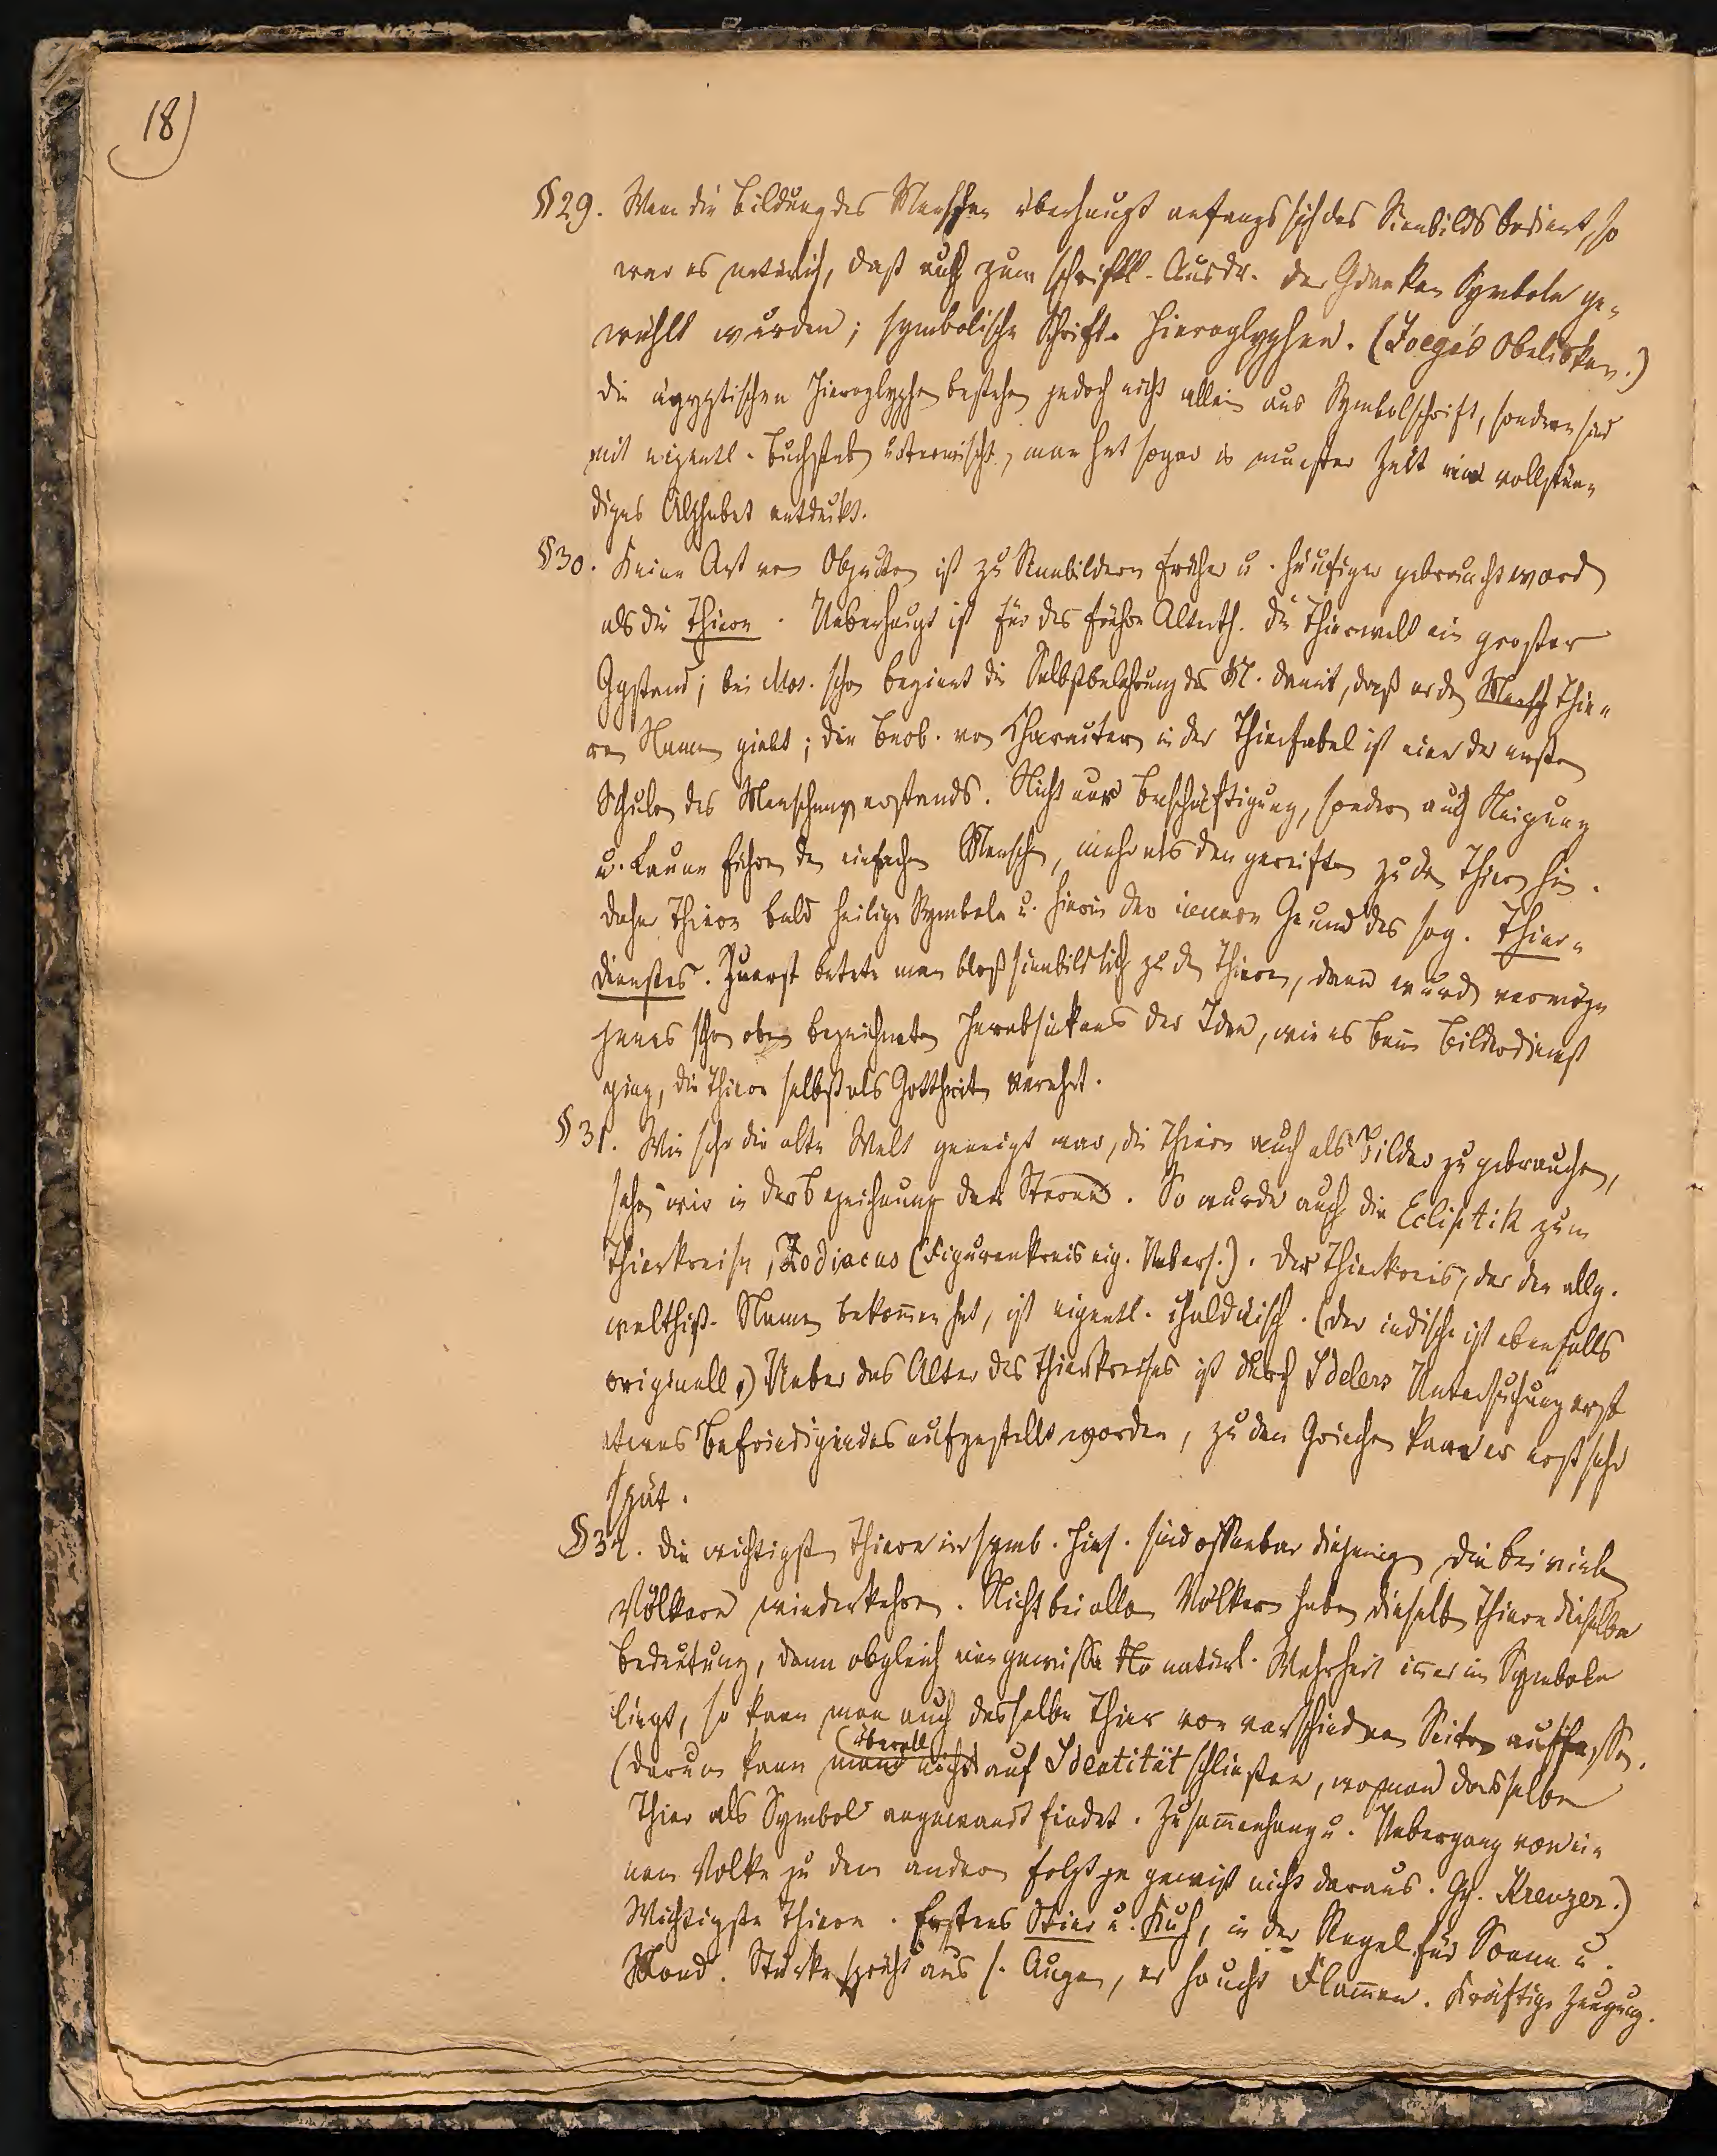 18)
§29. Wenn die Bildung des Menschen überhaupt anfangs sich des Sinnbilds bedient, so
war es natürlich, daß auch zum schriftl. Ausdr. der Gdanken Symbole ge-
wählt wurden; symbolische Schrift. Hieroglyphen. (Zoega's Obelisken.)
die ägyptischen Hieroglyphen bestehen jedoch nicht allein aus Symbolschrift, sondern sind
mit eigentl. Buchstaben untermischt, man hat sogar in neuester Zeit ein vollstän-
diges Alphabet entdeckt.
§30. Keine Art von Objecten ist zu Sinnbildern früher u. häufiger gebraucht worden
als die Thiere. Ueberhaupt ist für das frühere Alterth. die Thierwelt ein großer
Ggstand; bei Mos. schon beginnt die Selbstbelehrung des M. damit, daß er den Mensch Thie-
ren Namen giebt; die Beob. von Characteren in der Thierfabel ist eine der ersten
Schulen des Menschenverstands. Nicht nur Beschäftigung, sondern auch Neigung
u. Laune führen den einfachen Menschen, mehr als den gereiften zu den Thieren hin.
daher Thiere bald heilige Symbole u. hierin der innere Grund des sog. Thier-
dienstes. Zuerst betete man bloß sinnbildlich zu den Thieren, dann wurden vermöge
jenes schon oben bezeichneten Herabsinkens der Idee, wie es beim Bilderdienst
ging, die Thiere selbst als Gottheiten verehrt.
§31. Wie sehr die alte Welt geneigt war, die Thiere auch als Bilder zu gebrauchen,
sehen wir in der Bezeichnung der Sterne. So wurde auch die Ecliptik zum
Thierkreise, Zodiacus (Figurenkreis eig. Uebers.). Der Thierkreis, der den allg.
welthist. Namen bekom̄en hat, ist eigentl. chaldäisch. (der indische ist ebenfalls
originell.) Ueber das Alter des Thierkreises ist durch Idelers Untersuchung erst
etwas Befriedigendes aufgestellt worden, zu den Griechen kam er erst sehr
spät.
§32. Die wichtigsten Thiere in symb. Hins. sind offenbar diejenigen die bei vielen
Völkern wiederkehren. Nicht bei allen Völkern haben dieselben Thiere dieselbe
Bedeutung, denn obgleich eine gewisse Na natürl. Wahrheit im̄er im Symbole
liegt, so kann man auch dasselbe Thier von verschiedenen Seiten auffassen.
(darum kann man nicht überall auf Identität schließen, wo man dasselbe
Thier als Symbol angewandt findet. Zusam̄enhang u. Uebergang von ei-
nem Volke zu dem andern folgt ja gewiß nicht daraus. Gg. Kreuzer.)
Wichtigste Thiere. Erstens Stier u. Kuh, in der Regel für Sonne u.
Mond. Stärke sprüht aus s. Augen, er haucht Flam̄en. Kräftige Zeugung.